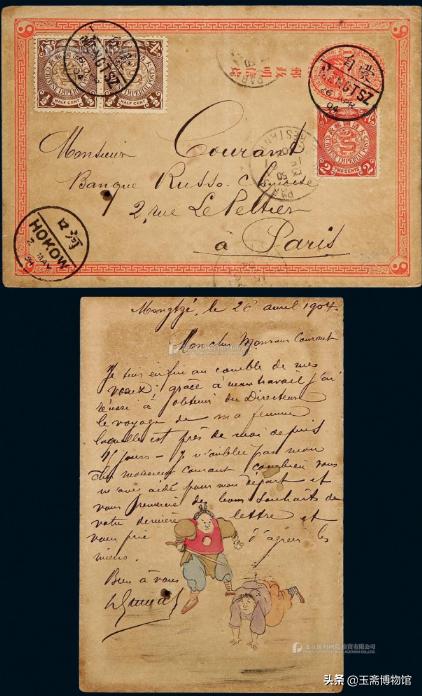 HALF CENT
HALF CENT
蒙自
MENGTSZ
26 APR
04
蒙自
MENGTSZ
26 APR
04
郵政明信片
2
2
TWO CENTS
Monsieur Courant
Banque Russo-Chinoise
12, rue Le Peltier
à Paris
河口
HOKOW
2 MAY
Mongtzé, le 26 avril 1904
Mon cher Monsieur Courant
Je suis enfin au comble de mes
voeux; grâce à mon travail j'ai
réussi à obtenir du Directeur
le voyage de ma femme
laquelle est près de moi depuis
jours - Je n'oublie pas mon
cher monsieur Courant combien vous
m'avez aidé pour mon départ et
vous remercie de leurs souhaits de
votre dernière lettre et
vous prie d'agréer les
miens.
Bien à vous
头条 @玉斋博物馆